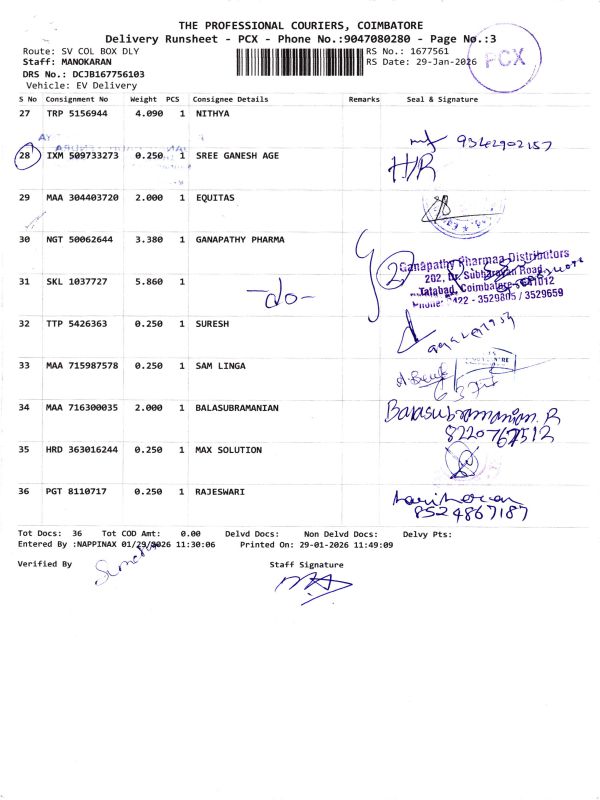 THE PROFESSIONAL COURIERS, COIMBATORE
Delivery Runsheet - PCX - Phone No.:9047080280 - Page No.:3
Route: SV COL BOX DLY RS No.: 1677561
Staff: MANOKARAN RS Date: 29-Jan-2026
PCX
DRS No.: DCJB167756103
Vehicle: EV Delivery
S No Consignment No Weight PCS Consignee Details Remarks Seal & Signature
27 TRP 5156944 4.090 1 NITHYA
9342902157
28 IXM 509733273 0.250 1 SREE GANESH AGE H/R
29 MAA 304403720 2.000 1 EQUITAS
30 NGT 50062644 3.380 1 GANAPATHY PHARMA
2 Ganapathy Pharmaa Distributors
202, Dr. Subbarayan Road,
31 SKL 1037727 5.860 1
Tatabad, Coimbatore-641012
-do- Phone: 0422 - 3529805 / 3529659
32 TTP 5426363 0.250 1 SURESH
33 MAA 715987578 0.250 1 SAM LINGA
34 MAA 716300035 2.000 1 BALASUBRAMANIAN Balasubramanian. R
8220767512
35 HRD 363016244 0.250 1 MAX SOLUTION
36 PGT 8110717 0.250 1 RAJESWARI
8524867187
Tot Docs: 36 Tot COD Amt: 0.00 Delvd Docs: Non Delvd Docs: Delvy Pts:
Entered By :NAPPINAX 01/29/2026 11:30:06 Printed On: 29-01-2026 11:49:09
Verified By Staff Signature